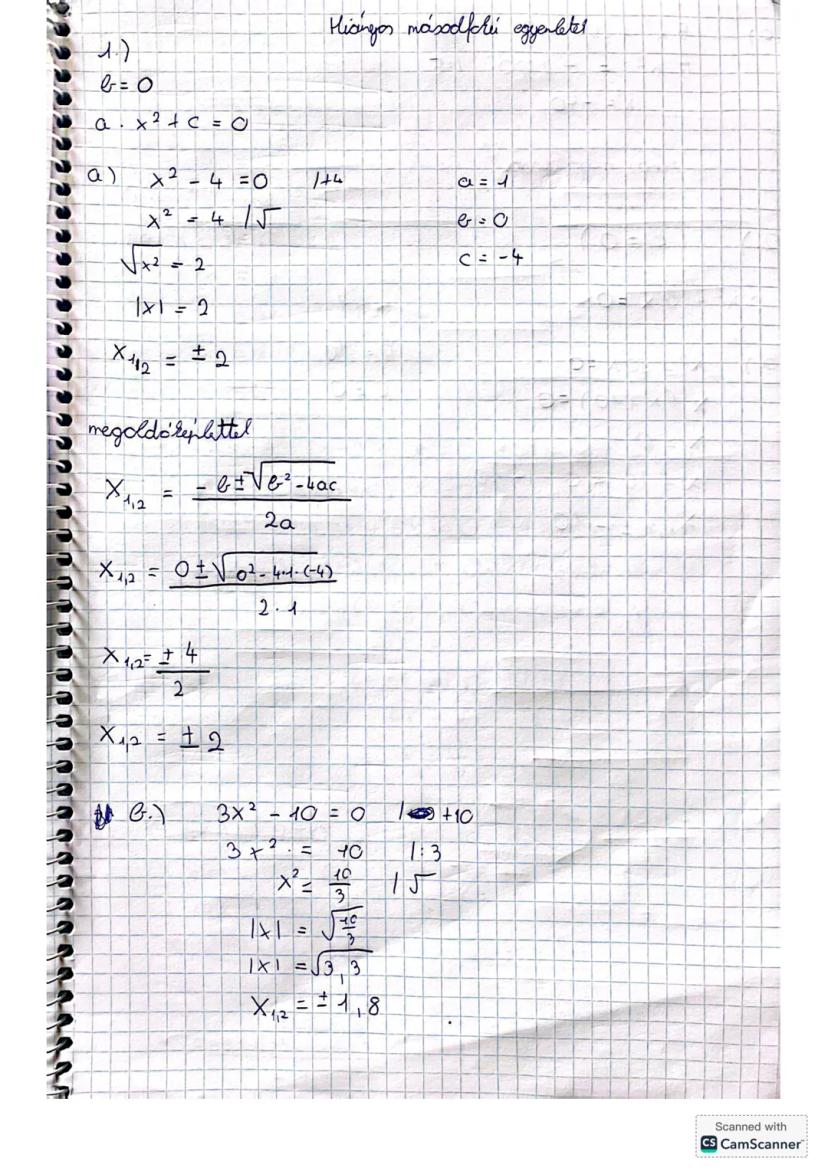 Hiányos másodfokú egyenletek
1.)
b = 0
a · x² + c = 0
a) x² - 4 = 0 /+4 a = 1
x² = 4 /√ b = 0
√x² = 2 c = -4
|x| = 2
x₁,₂ = ± 2
megoldóképlettel
x₁,₂ = (-b ± √(b² - 4ac)) / 2a
x₁,₂ = (0 ± √(0² - 4·1·(-4))) / 2 · 1
x₁,₂ = ± 4 / 2
x₁,₂ = ± 2
b.) 3x² - 10 = 0 / +10
3x² = 10 /:3
x² = 10/3 /√
|x| = √(10/3)
|x| = √3,3
x₁,₂ = ± 1,8
Scanned with
CS CamScanner